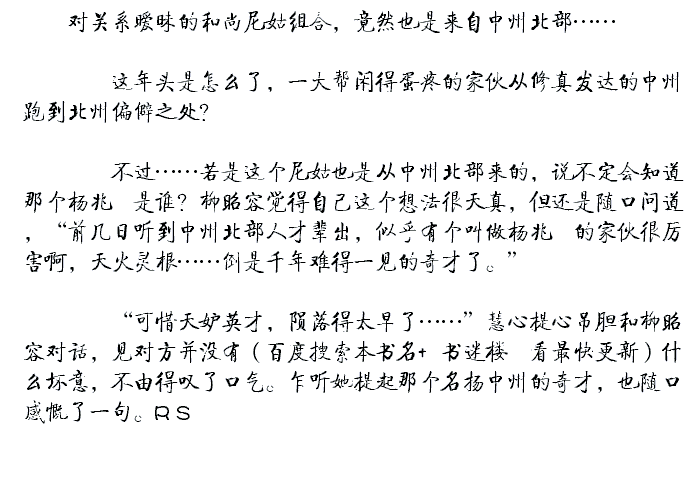 对关系暧昧的和尚尼姑组合，竟然也是来自中州北部……
这年头是怎么了，一大帮闲得蛋疼的家伙从修真发达的中州
跑到北州偏僻之处？
不过……若是这个尼姑也是从中州北部来的，说不定会知道
那个杨兆 是谁？柳昭容觉得自己这个想法很天真，但还是随口问道
，“前几日听到中州北部人才辈出，似乎有个叫做杨兆 的家伙很厉
害啊，天火灵根……倒是千年难得一见的奇才了。”
“可惜天妒英才，陨落得太早了……”慧心提心吊胆和柳昭
容对话，见对方并没有（百度搜索本书名+ 书迷楼 看最快更新）什
么坏意，不由得叹了口气。乍听她提起那个名扬中州的奇才，也随口
感慨了一句。RS